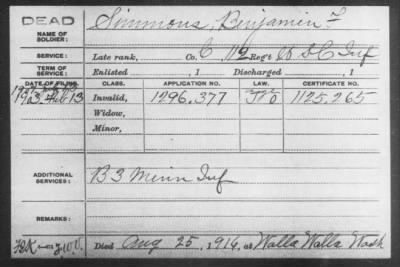 DEAD
NAME OF SOLDIER:
Simmons, Benjamin F
SERVICE:
Late rank, Co. C 112 Reg't US C Inf
TERM OF SERVICE:
Enlisted , 1 Discharged , 1
DATE OF FILING. CLASS. APPLICATION NO. LAW. CERTIFICATE NO.
1903 Feb 13 Invalid, 1296.377 1125.265
Widow,
Minor,
ADDITIONAL SERVICES:
B 3 Minn Inf
REMARKS:
Died Aug 25, 1916, at Walla Walla Wash